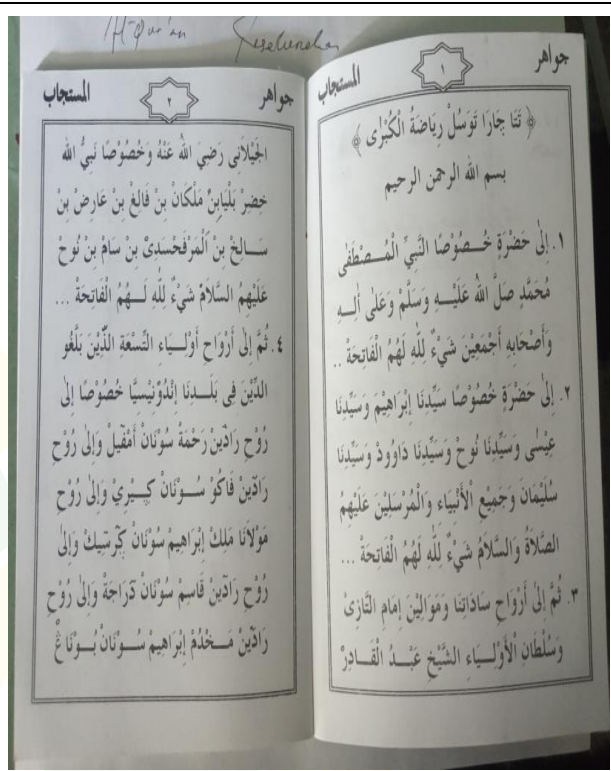 Al-Qur'an
جواهر ١ المستجاب
﴿ تَتَا چَارَا تَوَسُلْ رِيَاضَةُ الْكُبْرٰى ﴾
بسم الله الرحمن الرحيم
١. اِلىٰ حَضْرَةِ خُـصُوْصًا النَّبِيِّ الْمُـصْطَفٰى
مُحَمَّدٍ صَلَّ اللهُ عَلَيْـهِ وَسَلَّمْ وَعَلَى أٰلِـهِ
وَأَصْحَابِهِ أَجْمَعِيْنَ شَيْءٌ لِلّٰهِ لَهُمُ الْفَاتِحَةْ ..
٢. اِلىٰ حَضْرَةِ خُصُوْصًا سَيِّدِنَا إِبْرَاهِيْمَ وَسَيِّدِنَا
عِيْسٰى وَسَيِّدِنَا نُوحْ وَسَيِّدِنَا دَاوُودْ وَسَيِّدِنَا
سُلَيْمَانَ وَجَمِيْعِ الْأَنْبِيَاء وَالْمُرْسَلِيْنَ عَلَيْهِمُ
الصَّلَاةُ وَالسَّلَامُ شَيْءٌ لِلّٰهِ لَهُمُ الْفَاتِحَةْ ...
٣. ثُمَّ اِلىٰ أَرْوَاحِ سَادَاتِنَا وَمَوَالِيْنَ اِمَامِ التَّازِىْ
وَسُلْطَانِ الْأَوْلِـيَاءِ الشَّيْخِ عَبْـدُ الْقَـادِرْ
جواهر ٢ المستجاب
الْجَيْلَانِى رَضِيَ اللهُ عَنْهُ وَخُصُوْصًا نَبِيُّ الله
خِضِرْ بَلْيَابِنُ مَلْكَانْ بِنْ فَالِغْ بِنْ عَارِضْ بِنْ
سَـالِخْ بِنْ اَلْمَرْفَحْسَدِىْ بِنْ سَامْ بِنْ نُوحْ
عَلَيْهِمُ السَّلَامْ شَيْءٌ لِلّٰهِ لَـهُمُ الْفَاتِحَةْ ...
٤. ثُمَّ اِلىٰ أَرْوَاحِ أَوْلِـيَاءِ التِّسْعَةِ الَّذِيْنَ بَلَّغُو
الدِّيْنَ فِى بَلَـدِنَا إِنْدُوْنَيْسِيَّا خُصُوْصًا اِلىٰ
رُوْحِ رَادَيْن رَحْمَةْ سُوْنَانْ أَمْفَيلْ وَاِلىٰ رُوْحِ
رَادَيْن فَاكُوْ سُـوْنَانْ كِـيْرِيْ وَاِلىٰ رُوْحِ
مَوْلَانَا مَلِكْ إِبْرَاهِيمْ سُوْنَانْ كْرَسِيكْ وَاِلىٰ
رُوْحِ رَادَيْن قَاسِمْ سُوْنَانْ دَرَاجَةْ وَاِلىٰ رُوْحِ
رَادَيْن مَـخْدُمْ إِبْرَاهِيمْ سُـوْنَانْ بُـوْنَاڠْ